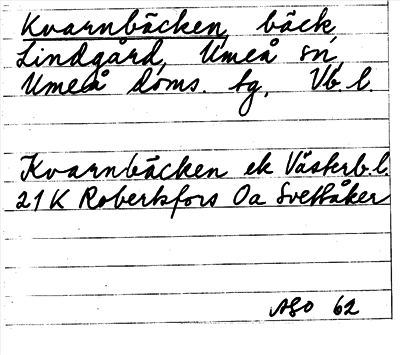 Kvarnbäcken, bäck,
Lindgård, Umeå sn,
Umeå doms. tg, Vb. l.
Kvarnbäcken ek Västerb.l.
21K Robertsfors Oa Svettåker
ASO 62